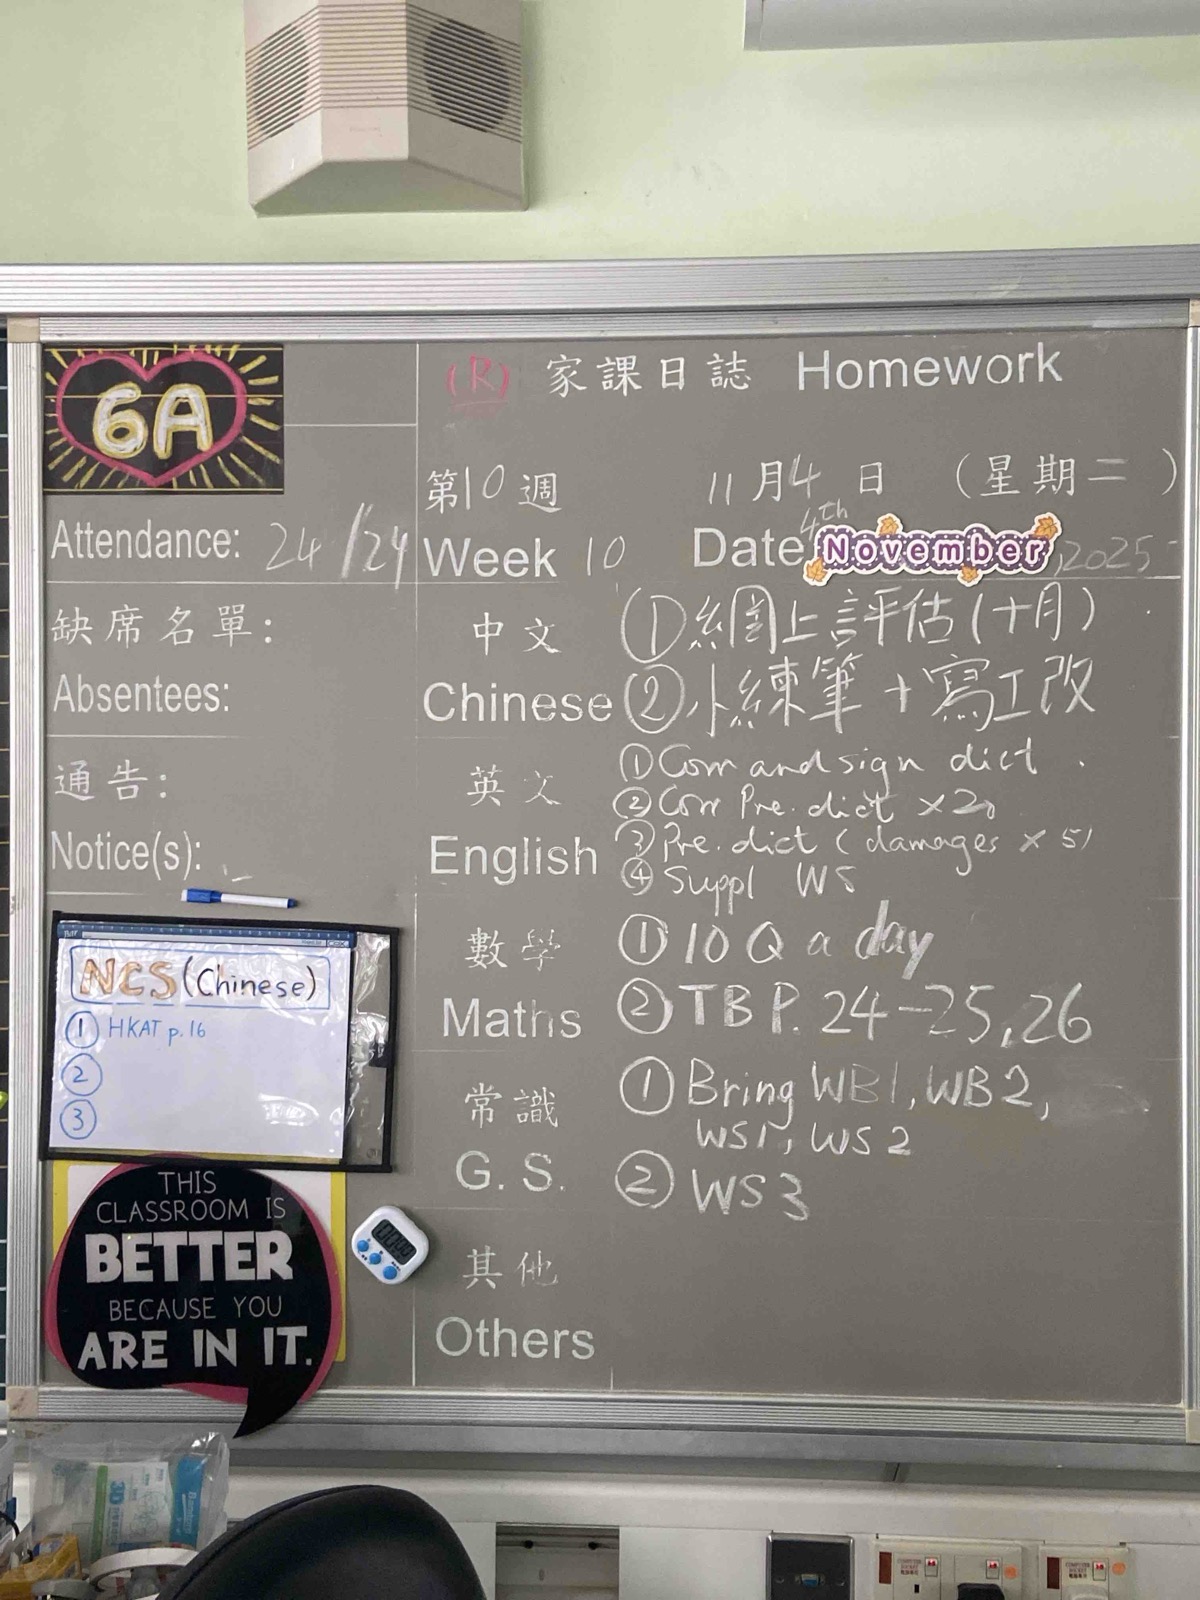 6A
(R) 家課日誌 Homework
第10週 11月4日 (星期二)
Attendance: 24/24
Week 10 Date 4th November, 2025
缺席名單:
Absentees:
通告:
Notice(s):
中文
Chinese
① 網上評估(十月)
② 小練筆 + 寫工改
英文
English
① Corr and sign dict.
② Corr Pre. dict x20
③ Pre. dict (damages x 5)
④ Suppl WS
數學
Maths
① 10 Q a day
② TB P. 24-25, 26
常識
G. S.
① Bring WB1, WB2,
WS1, WS2
② WS3
其他
Others
NCS (Chinese)
① HKAT p.16
②
③
THIS
CLASSROOM IS
BETTER
BECAUSE YOU
ARE IN IT.